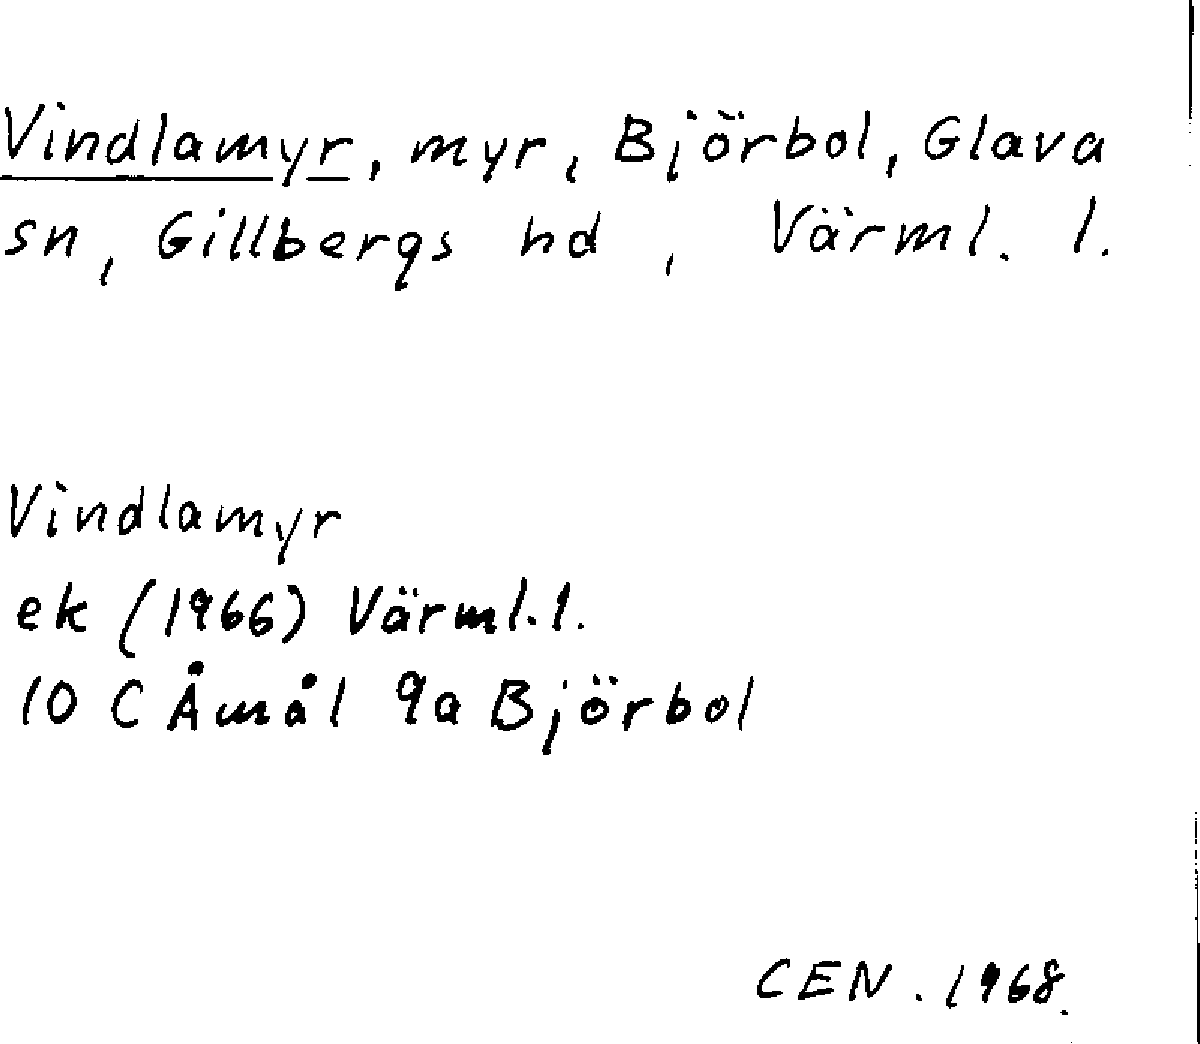 Vindlamyr, myr, Björbol, Glava
sn, Gillbergs hd, Värml. l.
Vindlamyr
ek (1966) Värml.l.
10 C Åmål 9a Björbol
CEN. 1968.